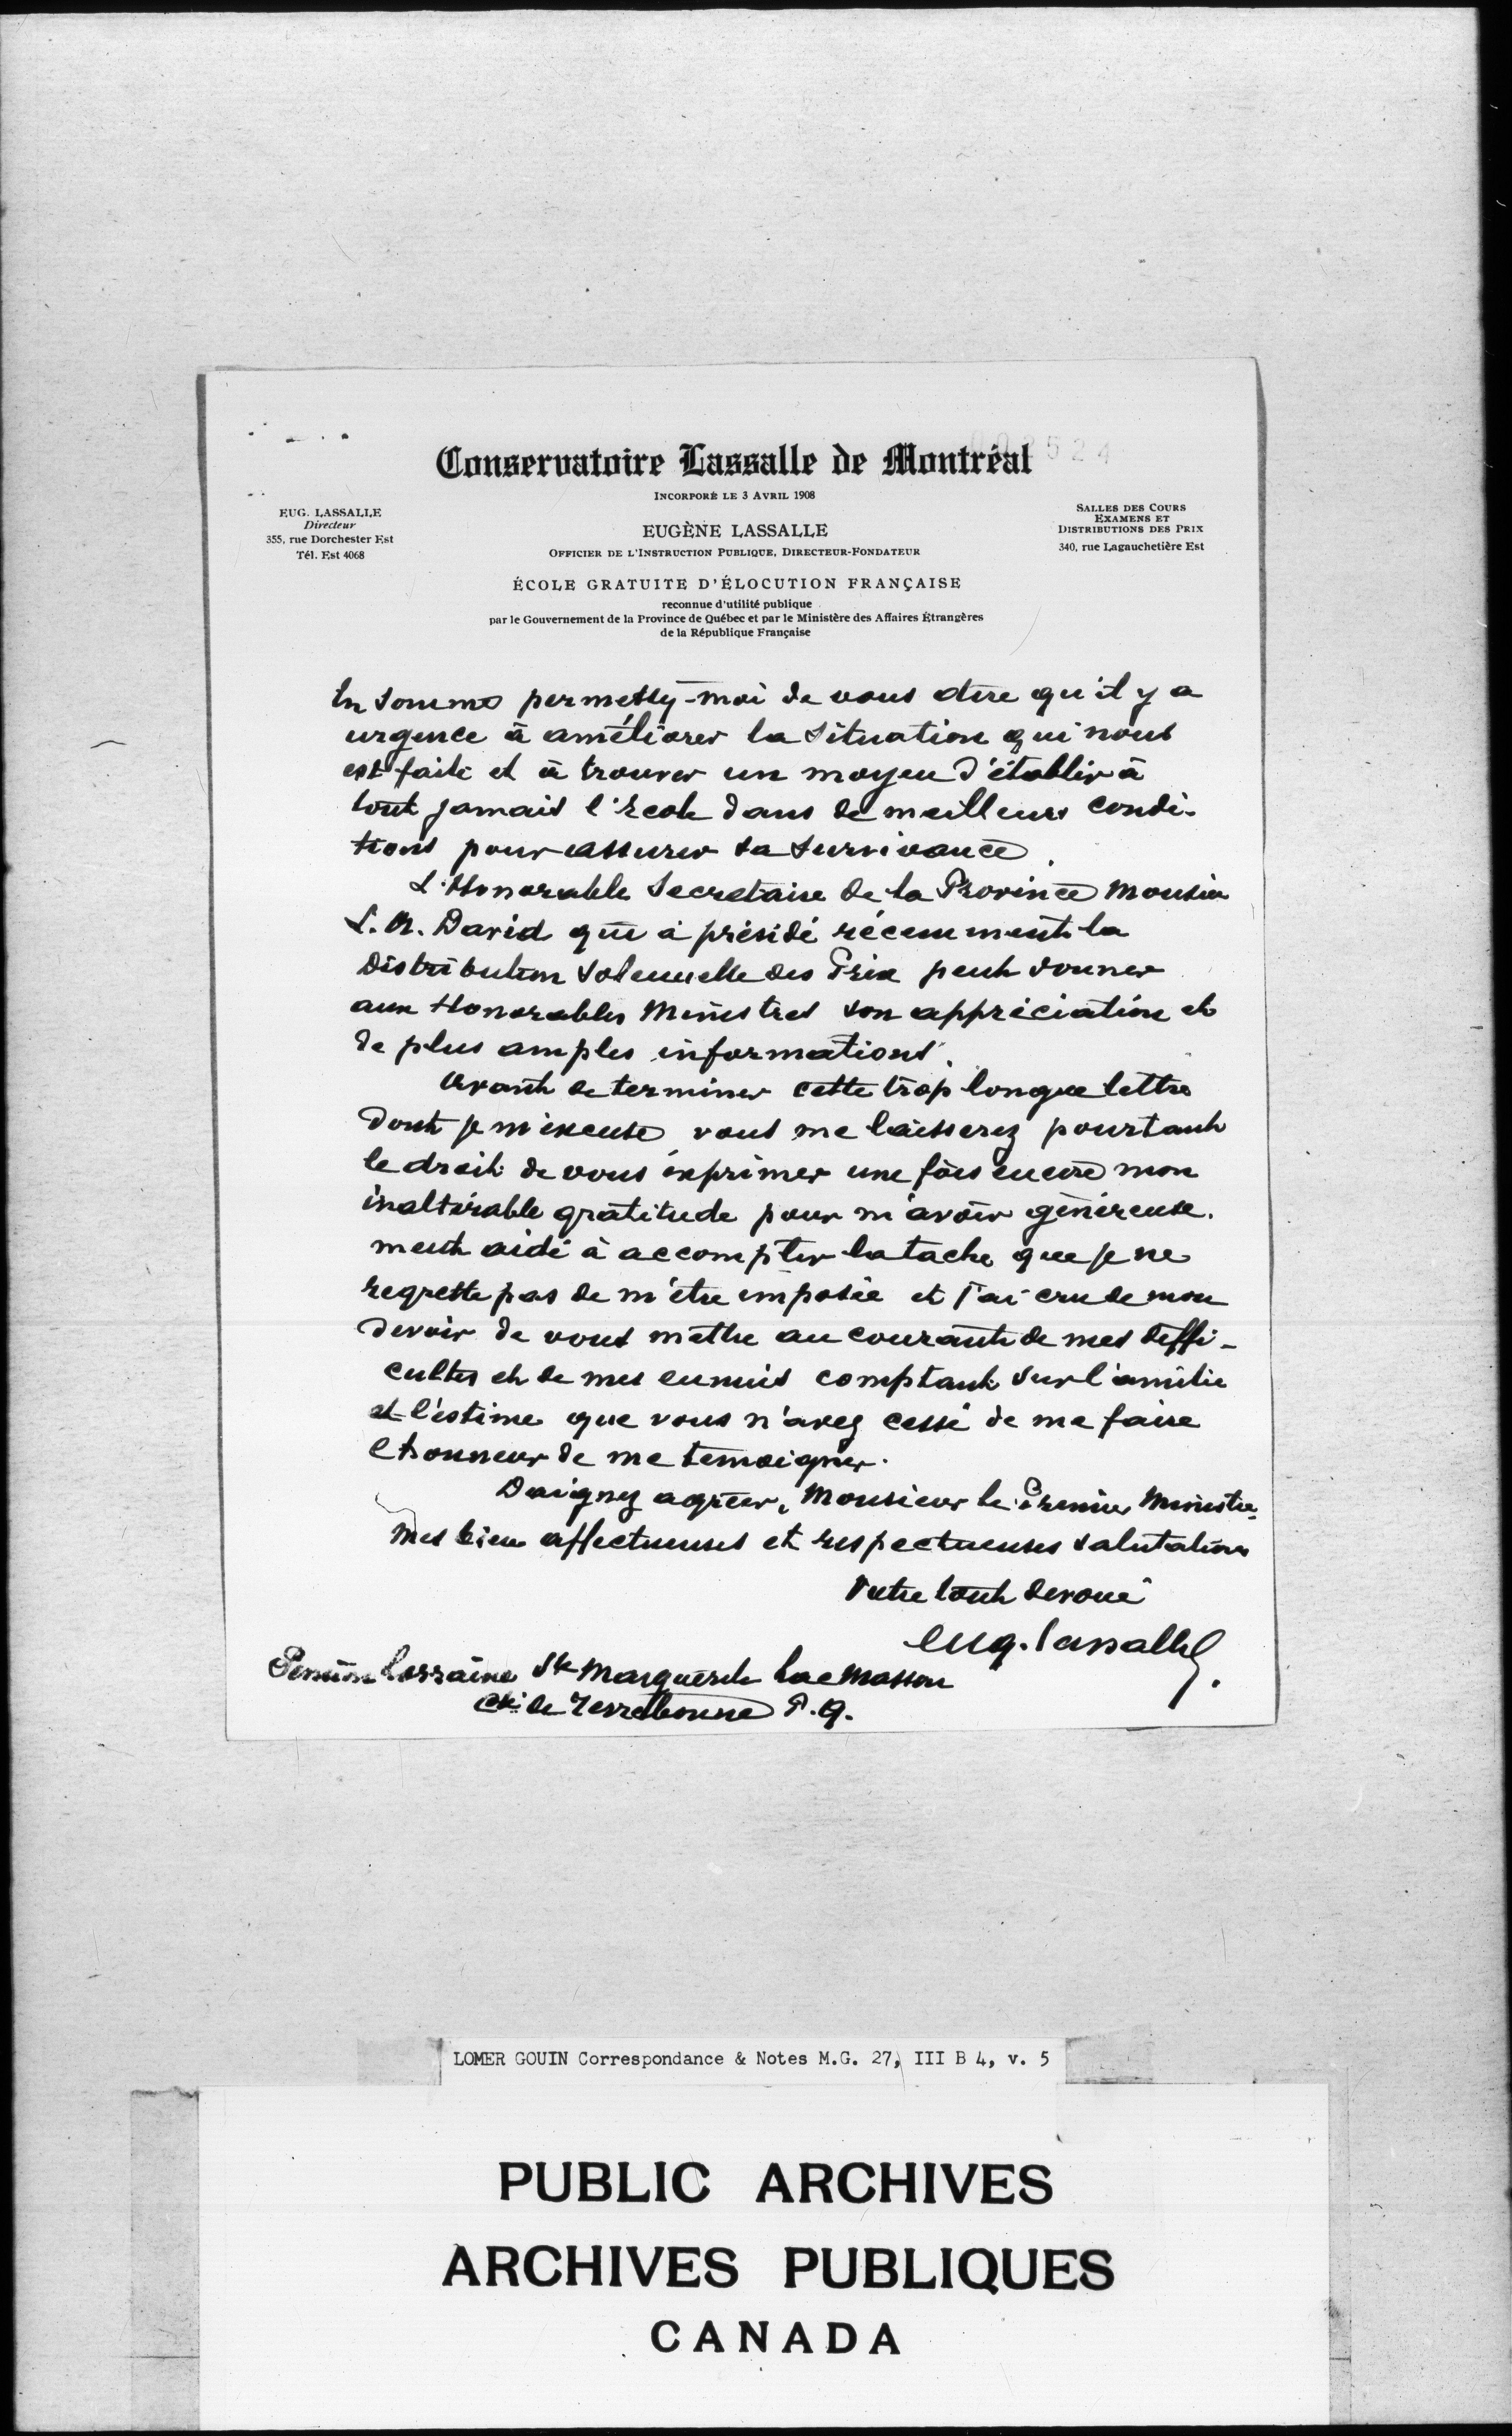 Conservatoire Lassalle de Montréal
INCORPORÉ LE 3 AVRIL 1908
EUG. LASSALLE
Directeur
355, rue Dorchester Est
Tél. Est 4068
EUGÈNE LASSALLE
OFFICIER DE L'INSTRUCTION PUBLIQUE, DIRECTEUR-FONDATEUR
SALLES DES COURS
EXAMENS ET
DISTRIBUTIONS DES PRIX
340, rue Lagauchetière Est
ÉCOLE GRATUITE D'ÉLOCUTION FRANÇAISE
reconnue d'utilité publique
par le Gouvernement de la Province de Québec et par le Ministère des Affaires Étrangères
de la République Française
En somme permettez-moi de vous dire qu'il y a
urgence à améliorer la situation qui nous
est faite et à trouver un moyen d'établir à
tout jamais l'École dans de meilleurs condi-
tions pour assurer sa survivance.
L'Honorable Secretaire de la Province Monsieur
L. A. David qui a présidé récemment la
Distribution Solennelle des Prix peut donner
aux Honorables Ministres son appréciation et
de plus amples informations.
Avant de terminer cette trop longue lettre
dont je m'excuse vous me laisserez pourtant
le droit de vous exprimer une fois encore mon
inaltérable gratitude pour m'avoir généreuse-
ment aidé à accomplir la tache que je ne
regrette pas de m'être imposée et j'ai cru de mon
devoir de vous mettre au courant de mes diffi-
cultés et de mes ennuis comptant sur l'amitié
et l'estime que vous n'avez cessé de me faire
l'honneur de me temoigner.
Daignez agréer, Monsieur le Premier Ministre,
mes bien affectueuses et respectueuses salutations
Votre tout devoué
Eug. Lassalle.
Pension Lorraine Ste Marguerite Lac Masson
Cté de Terrebonne P.Q.
LOMER GOUIN Correspondance & Notes M.G. 27, III B 4, v. 5
PUBLIC ARCHIVES
ARCHIVES PUBLIQUES
CANADA